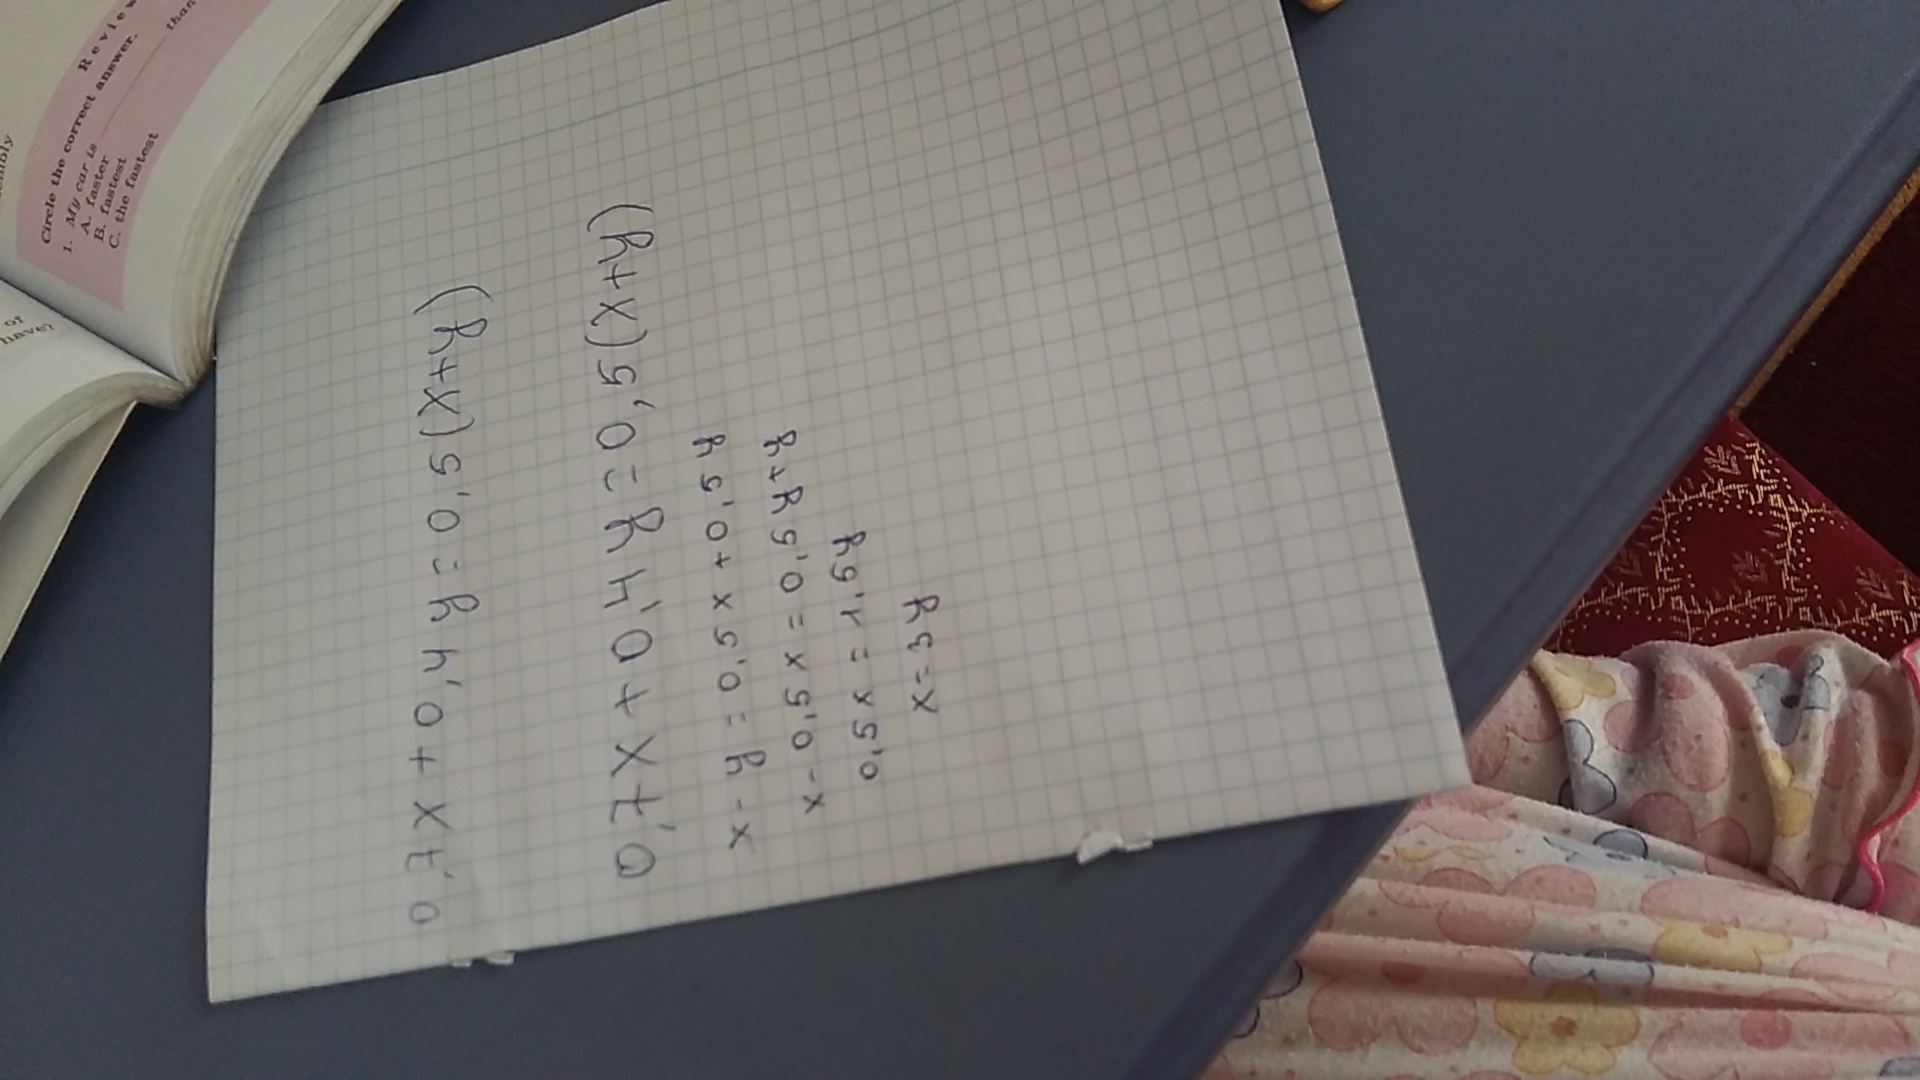 Review
Circle the correct answer.
1. My car is ___ than
A. faster
B. fastest
C. the fastest
of
have?
0,7x + 0,4y = 0,5(x+y)
0,7x + 0,4y = 0,5(x+y)
x - y = 0,5x + 0,5y
x - 0,5x = 0,5y+y
0,5x = 1,5y
x = 3y